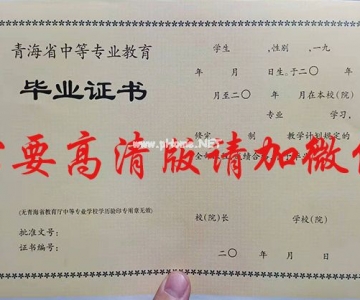 青海省中等专业教育
毕业证书
(无青海省教育厅中等专业学校学历验印专用章无效)
批准文号：
证书编号：
学生 ，性别 ，一九
年 月 日生，于二〇
年 月至二〇 年 月在本校(院)
专业 学习，
修完 制 教学计划规定的
校(院)长 学校(院)
二〇 年 月 日
要高清版请加微
www.pHome.NET